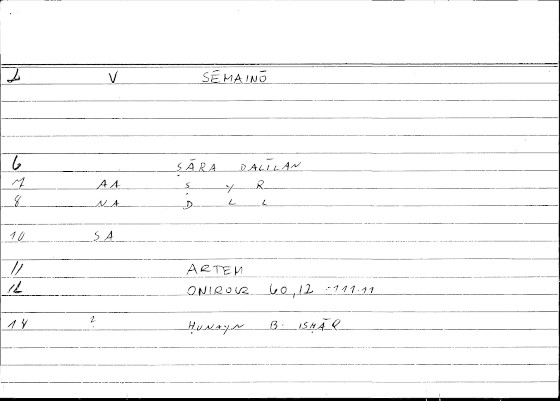 1 V SĒMAINŌ
6 ṢĀRA DALĪLAN
7 AA Ṣ Y R
8 NA D L L
10 SA
11 ARTEM
12 ONIROCR 60,12 -111.11
14 ḤUNAYN B. ISḤĀQ